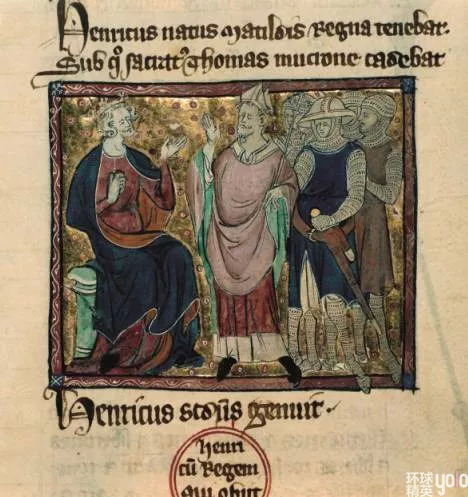 Henricus natus Matildis Regna tenebat.
Sub qo sacratr Thomas mucrone cadebat
Henricus scdus genuit.
henri
cū Regem
qui obiit
环球
精英 yolo